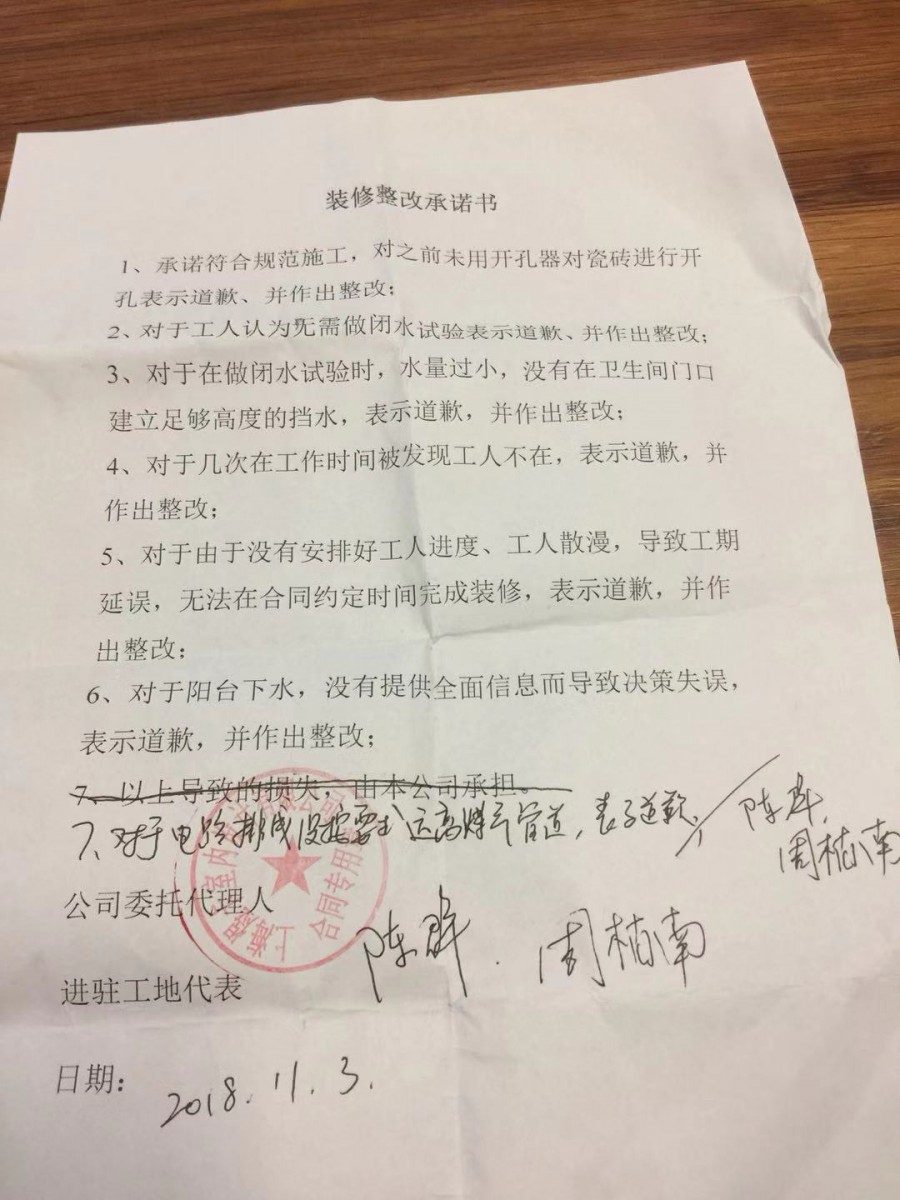 装修整改承诺书
1、承诺符合规范施工，对之前未用开孔器对瓷砖进行开
孔表示道歉、并作出整改；
2、对于工人认为无需做闭水试验表示道歉、并作出整改；
3、对于在做闭水试验时，水量过小，没有在卫生间门口
建立足够高度的挡水，表示道歉，并作出整改；
4、对于几次在工作时间被发现工人不在，表示道歉，并
作出整改；
5、对于由于没有安排好工人进度、工人散漫，导致工期
延误，无法在合同约定时间完成装修，表示道歉，并作
出整改：
6、对于阳台下水，没有提供全面信息而导致决策失误，
表示道歉，并作出整改；
7、以上导致的损失，由本公司承担。
7、对于电路排线没按要求远离煤气管道，表示道歉 陈
周楠南
上海 室内 合同专用
公司委托代理人
陈 周楠南
进驻工地代表
日期： 2018.11.3.